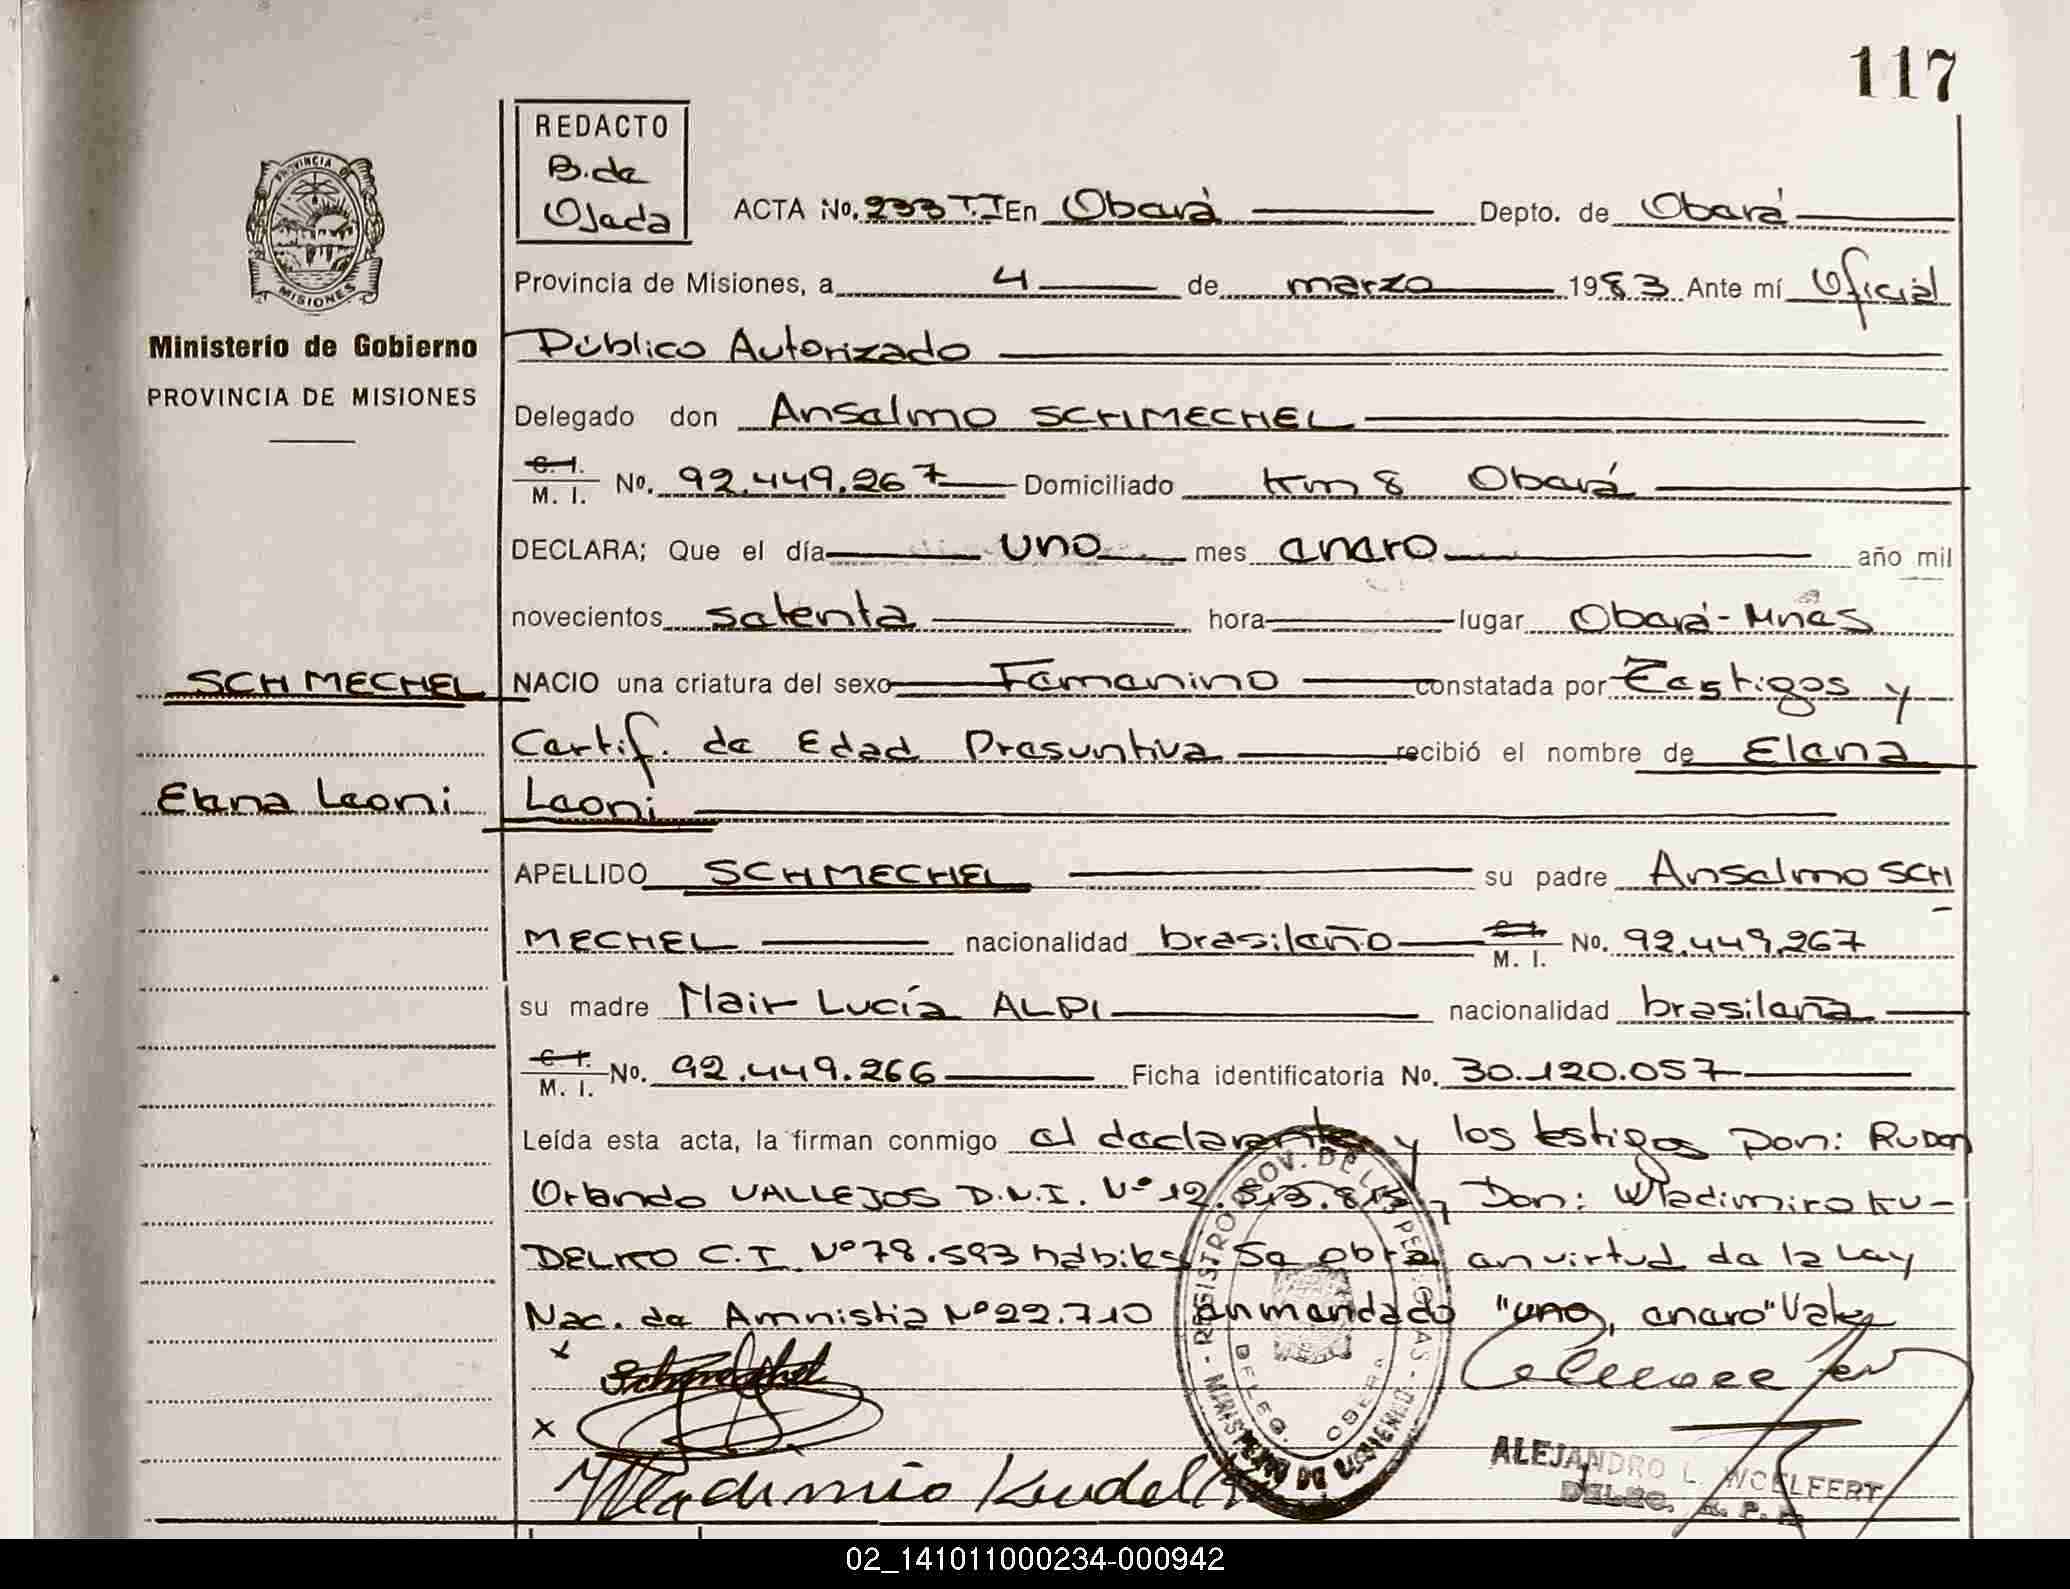 117
REDACTO
B. de
Ojeda
ACTA No. 233 T.I En Oberá Depto. de Oberá
PROVINCIA D
MISIONES
Provincia de Misiones, a 4 de marzo 1983 Ante mí Oficial
Ministerio de Gobierno
PROVINCIA DE MISIONES
Público Autorizado
Delegado don Anselmo SCHMECHEL
C. I.
M. I. No. 92.449.267 Domiciliado Km 8 Oberá
DECLARA; Que el día uno mes enero año mil
novecientos setenta hora lugar Oberá-Mnes
SCHMECHEL
NACIO una criatura del sexo Femenino constatada por Testigos y
Certif. de Edad Presuntiva recibió el nombre de Elena
Elena Leoni
Leoni
APELLIDO SCHMECHEL su padre Anselmo SCH
MECHEL nacionalidad brasileño C. I.
M. I. No. 92.449.267
su madre Nair Lucía ALPI nacionalidad brasileña
C. I.
M. I. No. 92.449.266 Ficha identificatoria No. 30.120.057
Leída esta acta, la firman conmigo el declarante y los testigos Don: Ruben
Orlando VALLEJOS D.N.I. Nº 12. y Don: Wladimiro KU-
DELKO C.I. Nº 78.593 hábiles Se obra en virtud de la Ley
Nac. de Amnistia Nº 22.710 enmendado "uno, enero" Vale
x
x
Wladimiro Kudelko
REGISTRO PROV. DE LAS PERSONAS
DELEG. OBERA
MINISTERIO DE GOBIERNO
ALEJANDRO L. WOELFERT
DELEG. R. P. P.
02_141011000234-000942